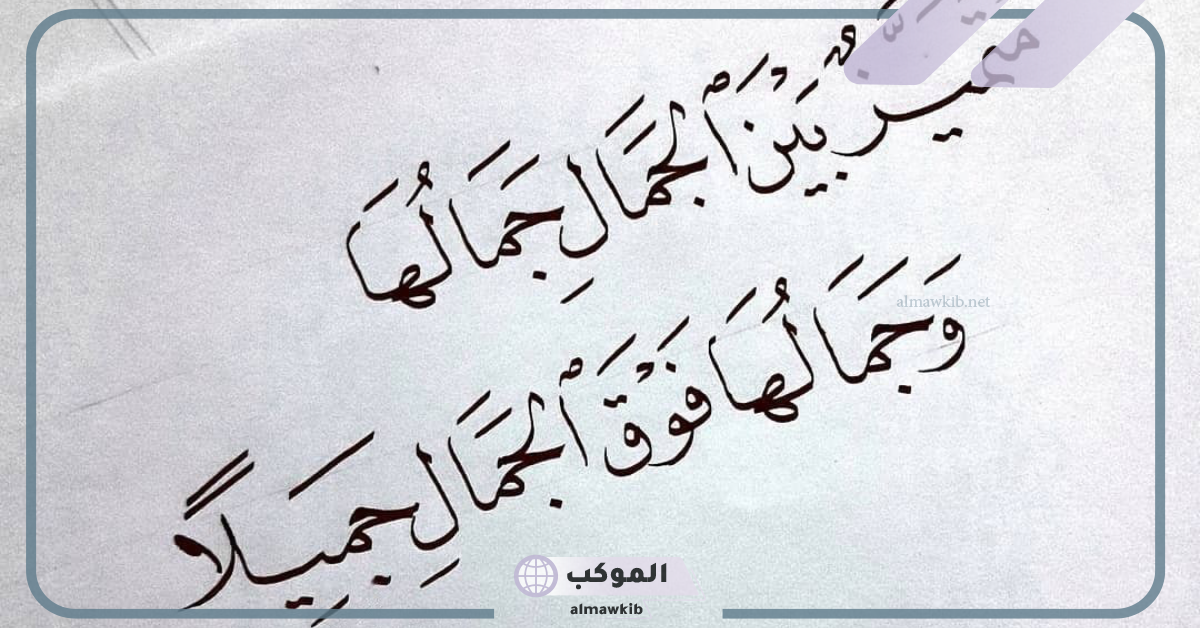 مُتَمَيِّزٌ بَيْنَ ٱلْجَمَالِ جَمَالُهَا
وَجَمَالُهَا فَوْقَ ٱلْجَمَالِ جَمِيلًا
almawkib.net
الموكب
almawkib